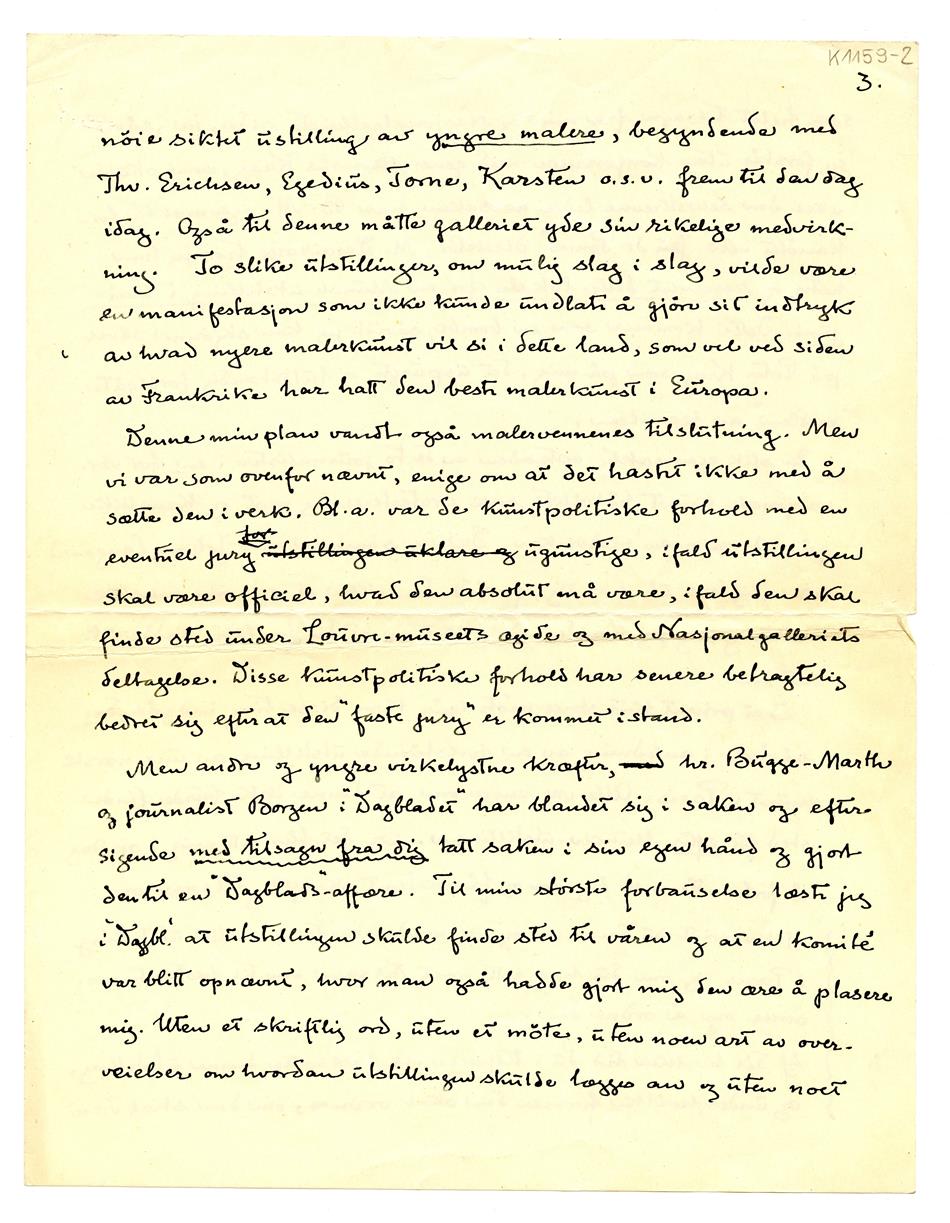 K1159-2
3.
nöie siktet ustilling av yngre malere, begyndende med
Thv. Erichsen, Egedius, Torne, Karsten o.s.v. frem til den dag
idag. Også til denne måtte galleriet yde sin rikelige medvirk-
ning. To slike utstillinger, om mulig slag i slag, vilde være
en manifestasjon som ikke kunde undlate å gjöre sit indtryk
av hvad nyere malerkunst vil si i dette land, som vel ved siden
av Frankrike har hatt den beste malerkunst i Europa.
Denne min plan vandt også malervennenes tilslutning. Men
vi var som ovenfor nævnt, enige om at det hastet ikke med å
sætte den i verk. Bl.a. var de kunstpolitiske forhold med en
for
eventuel jury utstillingen uklare og ugunstige, ifald utstillingen
skal være officiel, hvad den absolut må være, ifald den skal
finde sted under Louvre-museets ægide og med Nasjonalgalleriets
deltagelse. Disse kunstpolitiske forhold har senere betragtelig
bedret sig efter at den "faste jury" er kommet istand.
Men andre og yngre virkelystne kræfter, med hr. Bugge-Marth
og journalist Borgen i "Dagbladet" har blandet sig i saken og efter-
sigende med tilsagn fra dig tatt saken i sin egen hånd og gjort
den til en "Dagblads"-affære. Til min störste forbauselse læste jeg
i "Dagbl." at utstillingen skulde finde sted til våren og at en komité
var blitt opnævnt, hvor man også hadde gjort mig den ære å plasere
mig. Uten et skriftlig ord, uten et möte, uten noen art av over-
veielser om hvordan utstillingen skulde lægges an og uten noet